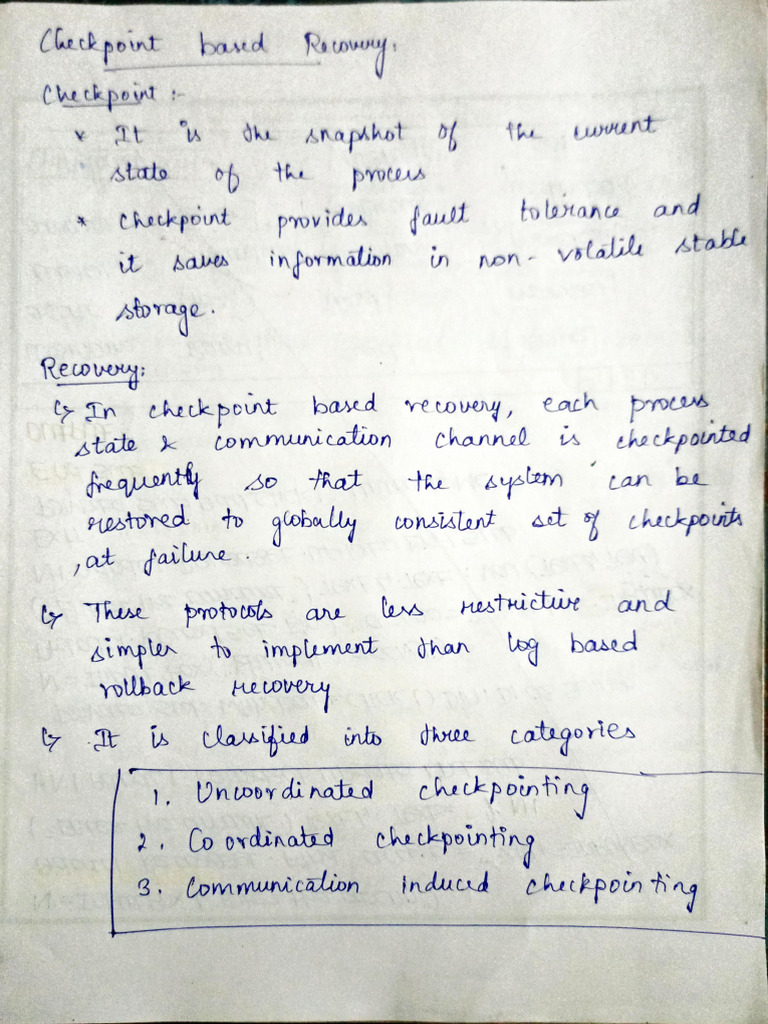 Checkpoint based Recovery:
Checkpoint :-
* It is the snapshot of the current
state of the process
* checkpoint provides fault tolerance and
it saves information in non-volatile stable
storage.
Recovery:
↳ In checkpoint based recovery, each process
state & communication channel is checkpointed
frequently so that the system can be
restored to globally consistent set of checkpoints
, at failure.
↳ These protocols are less restrictive and
simpler to implement than log based
rollback recovery
↳ It is classified into three categories
1. Uncoordinated checkpointing
2. Coordinated checkpointing
3. Communication induced checkpointing